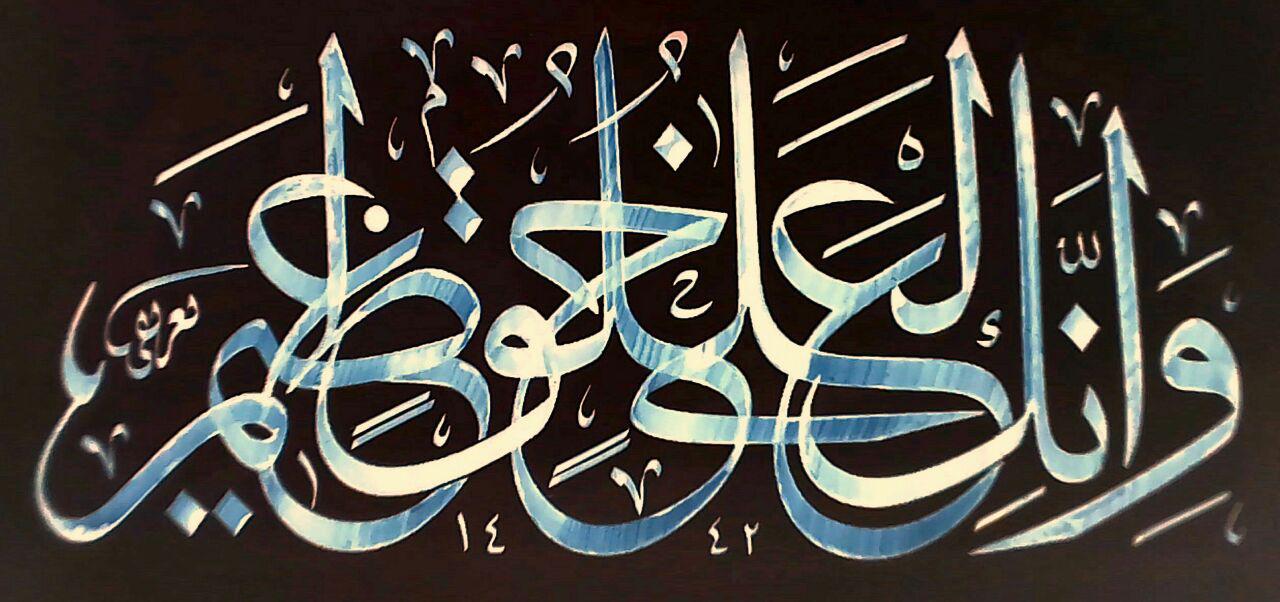 وَإِنَّكَ لَعَلَىٰ خُلُقٍ عَظِيمٍ
١٤٤٢